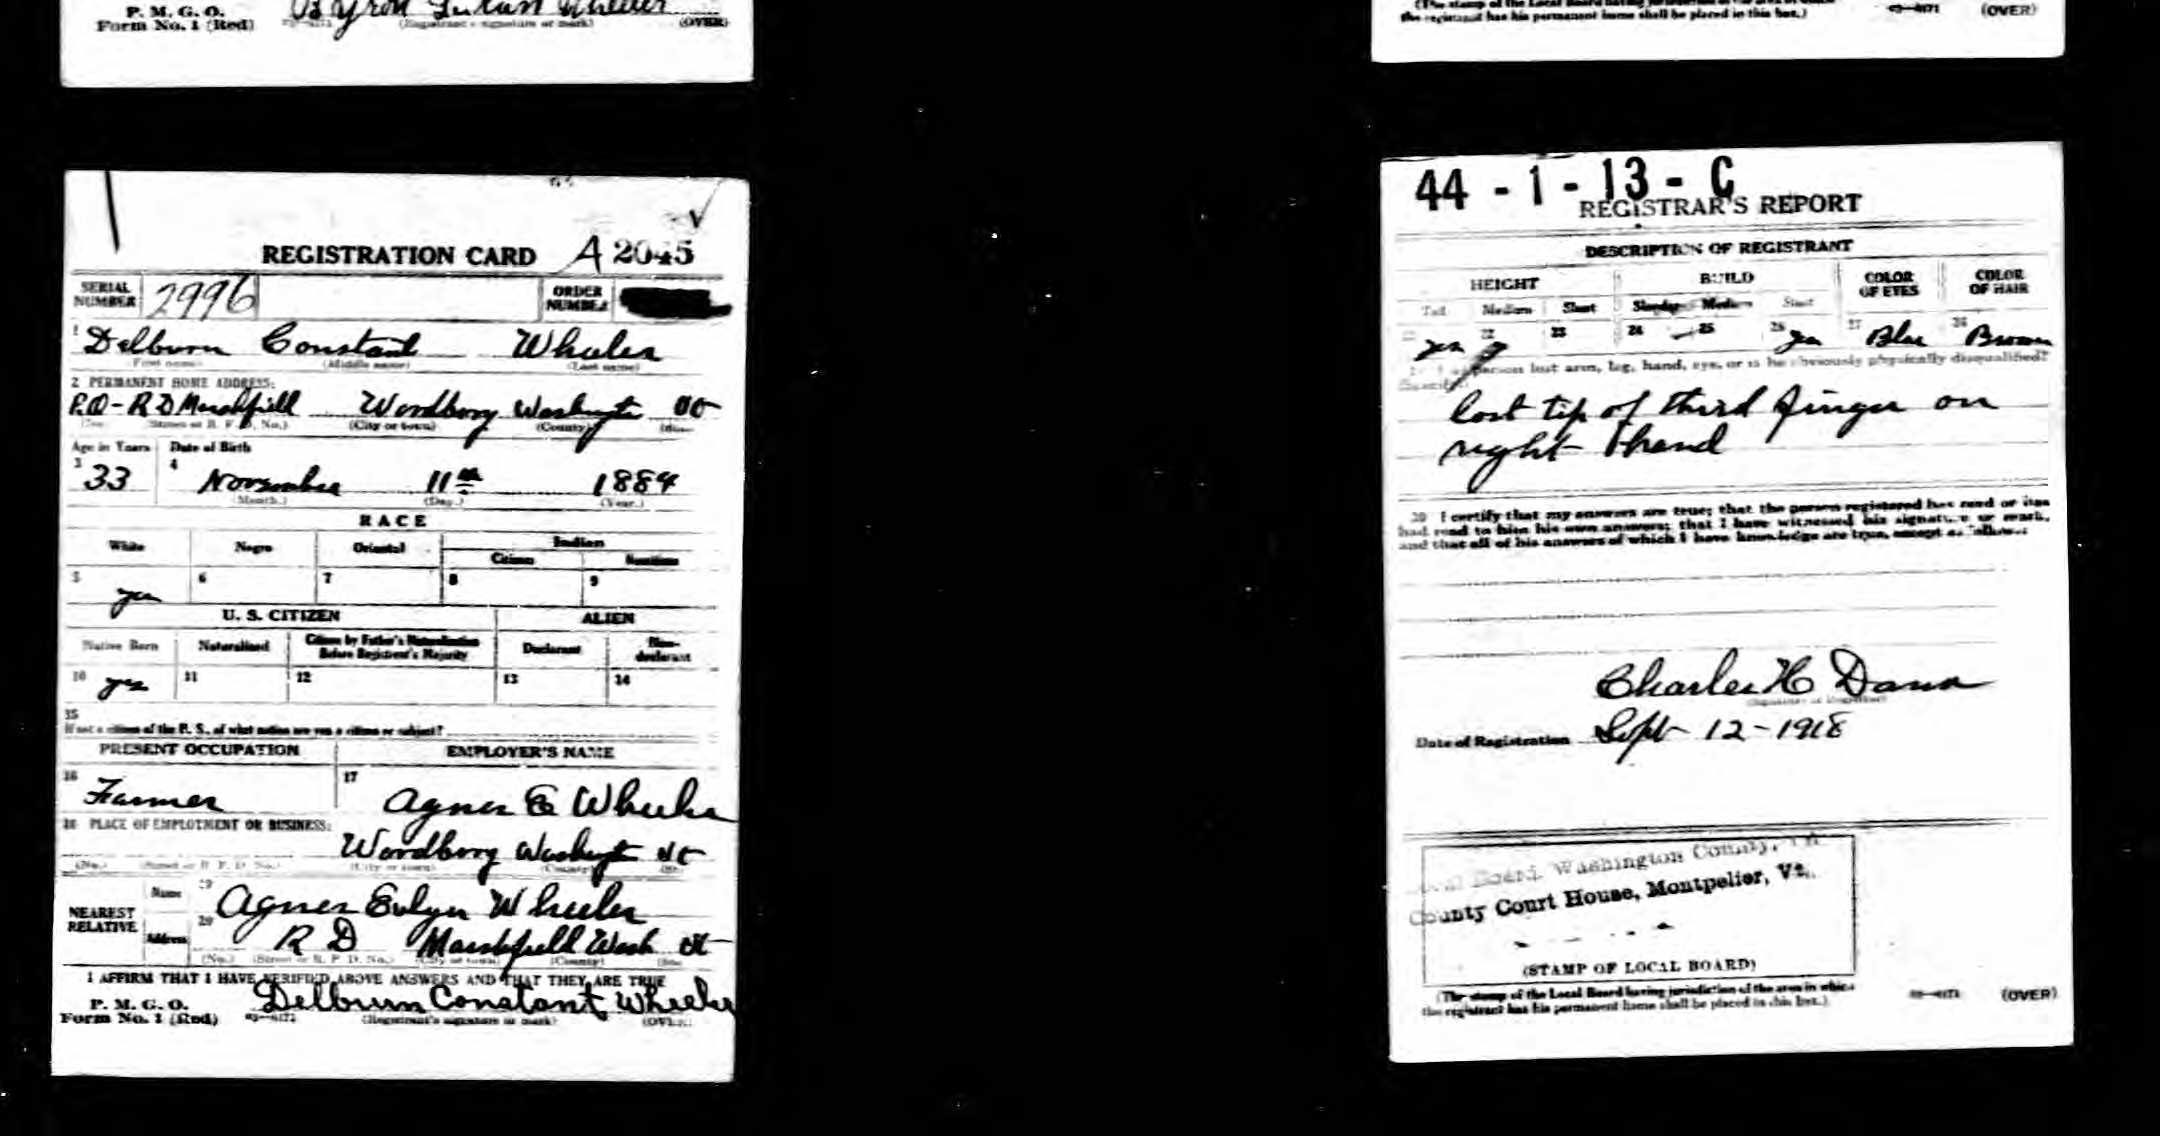 P. M. G. O.
Form No. 1 (Red)
Wheeler
(Registrant's signature or mark)
(OVER)
the registrant has his permanent home shall be placed in this box.)
(OVER)
REGISTRATION CARD A 2045
SERIAL NUMBER 2996
ORDER NUMBER
1 Delburn Constant Wheeler
(First name) (Middle name) (Last name)
2 PERMANENT HOME ADDRESS:
P.O - R D Marshfield Woodbury Washington Vt
(No.) (Street or R. F. D. No.) (City or town) (County)
Age in Years Date of Birth
3 33 4 November 11th 1884
(Month.) (Day.) (Year.)
RACE
White Negro Oriental Indian
Citizen
5 yes 6 7 8 9
U. S. CITIZEN ALIEN
Native Born Naturalized Citizen by Father's Naturalization Before Registrant's Majority Declarant Non-declarant
10 yes 11 12 13 14
15
If not a citizen of the U. S., of what nation are you a citizen or subject?
PRESENT OCCUPATION EMPLOYER'S NAME
16 Farmer 17 Agnes E Wheeler
18 PLACE OF EMPLOYMENT OR BUSINESS:
Woodbury Washington Vt
(No.) (Street or R. F. D. No.) (City or town) (County)
NEAREST RELATIVE
Name 19 Agnes Evlyn Wheeler
Address 20 R D Marshfield Wash Vt
(No.) (Street or R. F. D. No.) (City or town) (County)
I AFFIRM THAT I HAVE VERIFIED ABOVE ANSWERS AND THAT THEY ARE TRUE
P. M. G. O.
Form No. 1 (Red)
Delburn Constant Wheeler
(Registrant's signature or mark) (OVER)
44 - 1 - 13 - C
REGISTRAR'S REPORT
DESCRIPTION OF REGISTRANT
HEIGHT BUILD COLOR OF EYES COLOR OF HAIR
Tall Medium Short Slender Medium Stout
21 yes 22 23 24 25 26 yes 27 Blue 28 Brown
person lost arm, leg, hand, eye, or is he obviously physically disqualified?
lost tip of third finger on
right hand
30 I certify that my answers are true; that the person registered has read or has
had read to him his own answers; that I have witnessed his signature or mark,
and that all of his answers of which I have knowledge are true, except as follows:
Charles H Dana
Date of Registration Sept 12-1918
Local Board Washington County, Vt
County Court House, Montpelier, Vt.
(STAMP OF LOCAL BOARD)
(The stamp of the Local Board having jurisdiction of the area in which
the registrant has his permanent home shall be placed in this box.)
(OVER)